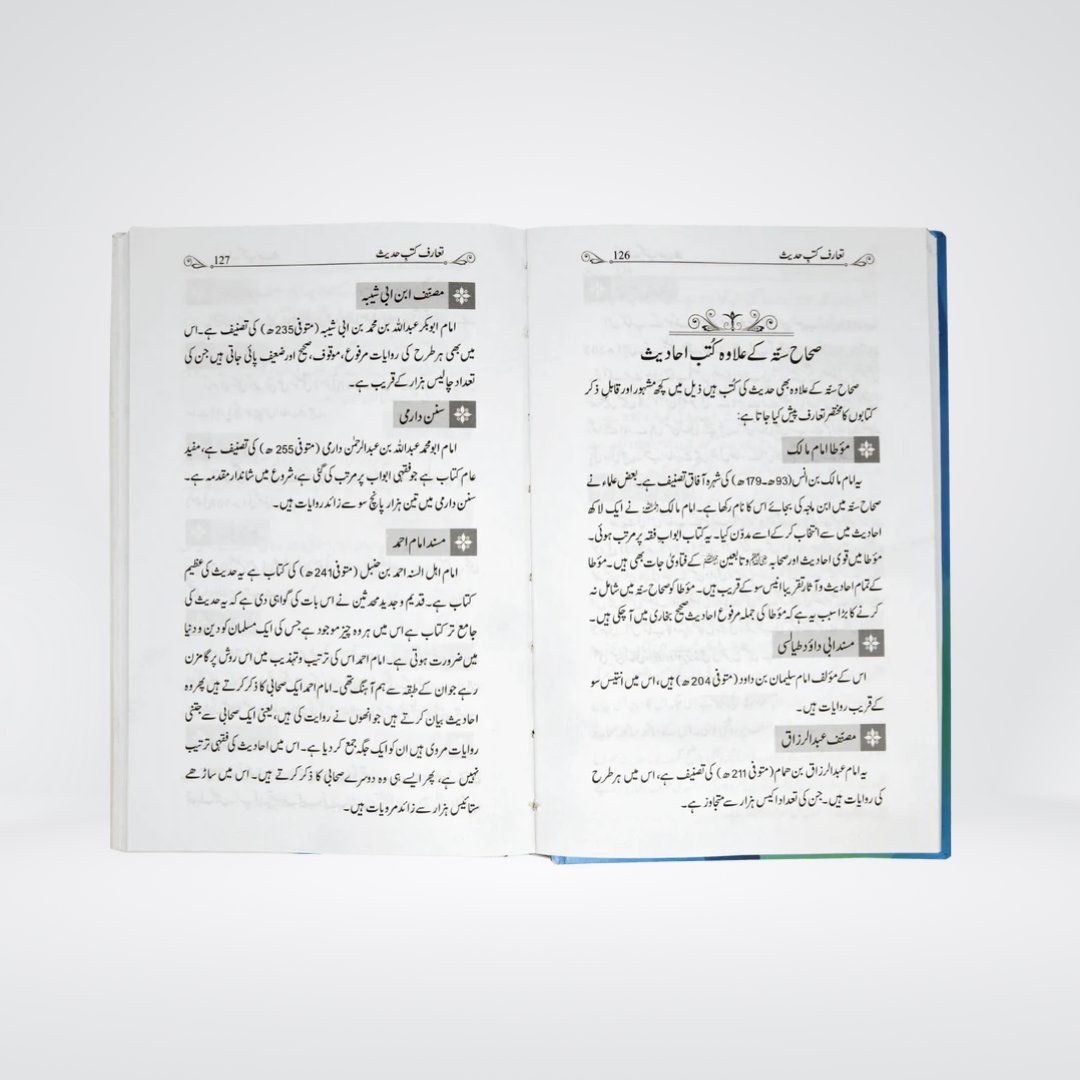 تعارف کتب حدیث 126
صحاح ستّہ کے علاوہ کُتب احادیث
صحاح ستہ کے علاوہ بھی حدیث کی کتب ہیں ذیل میں کچھ مشہور اور قابل ذکر
کتابوں کا مختصر تعارف پیش کیا جاتا ہے:
مؤطا امام مالک
یہ امام مالک بن انس (93ھ۔179ھ) کی شہرہ آفاق تصنیف ہے۔ بعض علماء نے
صحاح ستہ میں ابن ماجہ کی بجائے اس کا نام رکھا ہے۔ امام مالک رحمہ اللہ نے ایک لاکھ
احادیث میں سے انتخاب کر کے اسے مدوّن کیا۔ یہ کتاب ابواب فقہ پر مرتب ہوئی۔
مؤطا میں قوی احادیث اور صحابہ وتابعین کے فتاویٰ جات بھی ہیں۔ مؤطا
کے تمام احادیث و آثار تقریبا انیس سو کے قریب ہیں۔ مؤطا کو صحاح ستہ میں شامل نہ
کرنے کا بڑا سبب یہ ہے کہ مؤطا کی جملہ مرفوع احادیث صحیح بخاری میں آ چکی ہیں۔
مسند ابی داؤد طیالسی
اس کے مؤلف امام سلیمان بن داود (متوفی 204ھ) ہیں، اس میں انتیس سو
کے قریب روایات ہیں۔
مصنّف عبدالرزاق
یہ امام عبدالرزاق بن ھمام (متوفی 211ھ) کی تصنیف ہے، اس میں ہر طرح
کی روایات ہیں۔ جن کی تعداد اکیس ہزار سے متجاوز ہے۔
تعارف کتب حدیث 127
مصنّف ابن ابی شیبہ
امام ابوبکر عبداللہ بن محمد بن ابی شیبہ (متوفی 235ھ) کی تصنیف ہے۔ اس
میں بھی ہر طرح کی روایات مرفوع، موقوف، صحیح اور ضعیف پائی جاتی ہیں جن کی
تعداد چالیس ہزار کے قریب ہے۔
سنن دارمی
امام ابو محمد عبداللہ بن عبدالرحمٰن دارمی (متوفی 255ھ) کی تصنیف ہے، مفید
عام کتاب ہے جو فقہی ابواب پر مرتب کی گئی ہے، شروع میں شاندار مقدمہ ہے۔
سنن دارمی میں تین ہزار پانچ سو سے زائد روایات ہیں۔
مسند امام احمد
امام اہل السنہ احمد بن حنبل (متوفی 241ھ) کی کتاب ہے یہ حدیث کی عظیم
کتاب ہے۔ قدیم و جدید محدثین نے اس بات کی گواہی دی ہے کہ یہ حدیث کی
جامع تر کتاب ہے اس میں ہر وہ چیز موجود ہے جس کی ایک مسلمان کو دین و دنیا
میں ضرورت ہوتی ہے۔ امام احمد اس کی ترتیب و تہذیب میں اس روش پر گامزن
رہے جو ان کے طبقہ سے ہم آہنگ تھی۔ امام احمد ایک صحابی کا ذکر کرتے ہیں پھر وہ
احادیث بیان کرتے ہیں جو انھوں نے روایت کی ہیں، یعنی ایک صحابی سے جتنی
روایات مروی ہیں ان کو ایک جگہ جمع کر دیا ہے۔ اس میں احادیث کی فقہی ترتیب
نہیں ہے، پھر ایسے ہی وہ دوسرے صحابی کا ذکر کرتے ہیں۔ اس میں ساڑھے
ستائیس ہزار سے زائد مرویات ہیں۔